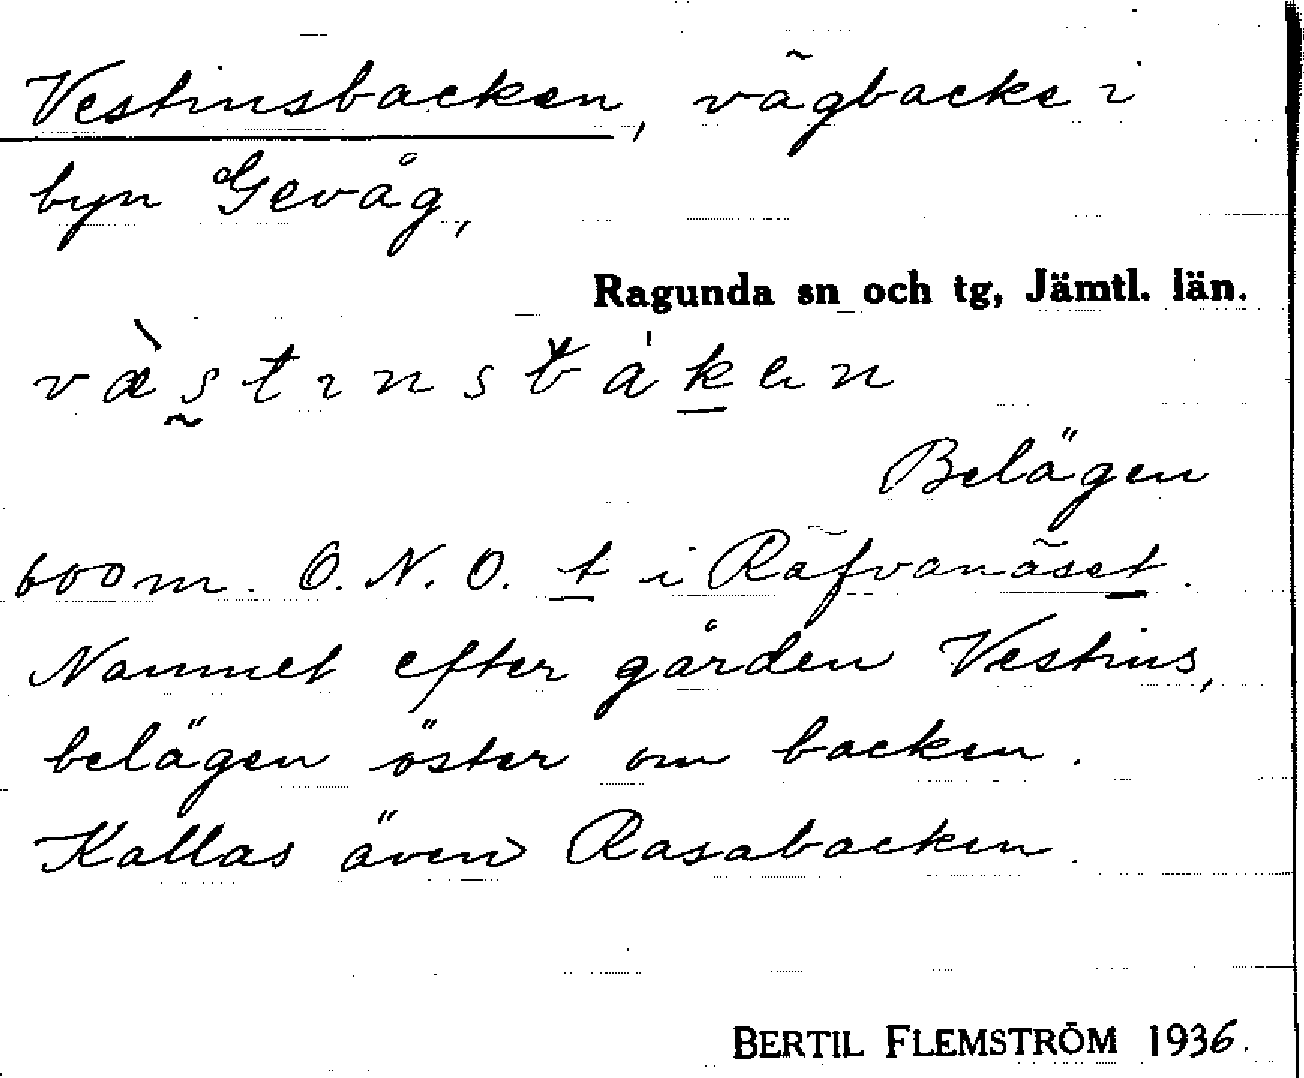 Vestinsbacken, vägbacke i
byn Gevåg,
Ragunda sn och tg, Jämtl. län.
væ̀stɪnsbákɐn
Belägen
600 m. O.N.O. t i Räfvanäset.
Namnet efter gården Vestins,
belägen öster om backen.
Kallas även Rasabacken.
BERTIL FLEMSTRÖM 1936.